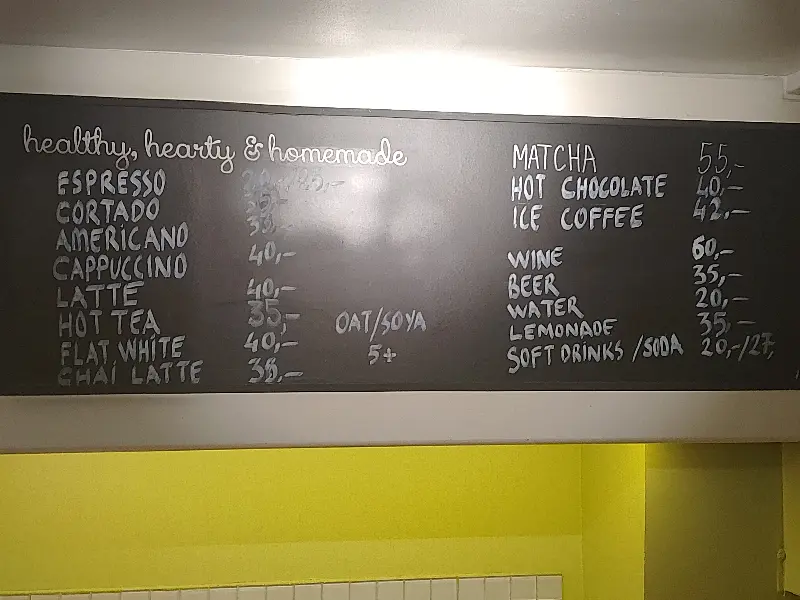 healthy, hearty & homemade
ESPRESSO
CORTADO
AMERICANO
CAPPUCCINO 40,-
LATTE 40,-
HOT TEA 35,-
FLAT WHITE 40,-
CHAI LATTE 38,-
OAT/SOYA
5+
MATCHA 55,-
HOT CHOCOLATE 40,-
ICE COFFEE 42,-
WINE 60,-
BEER 35,-
WATER 20,-
LEMONADE 35,-
SOFT DRINKS /SODA 20,-/27,